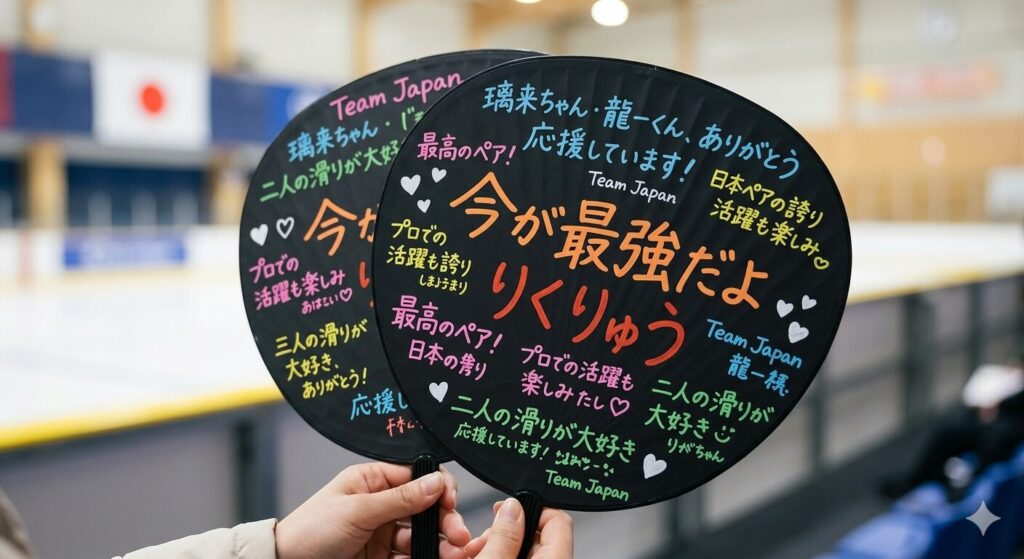 Team Japan
璃来ちゃん・
二人の滑りが大好
今が
プロでの
活躍も楽しみ
三人の滑りが
大好き、
ありがとう!
応援し
璃来ちゃん・龍一くん、ありがとう
応援しています!
最高のペア!
Team Japan
日本ペアの誇り
活躍も楽しみ♡
今が最強だよ
りくりゅう
プロでの
活躍も誇り
最高のペア!
日本の
プロでの活躍も
楽しみたし♡
Team Japan
龍一
二人の滑りが
大好き
りがちゃん
二人の滑りが大好き
応援しています!
Team Japan